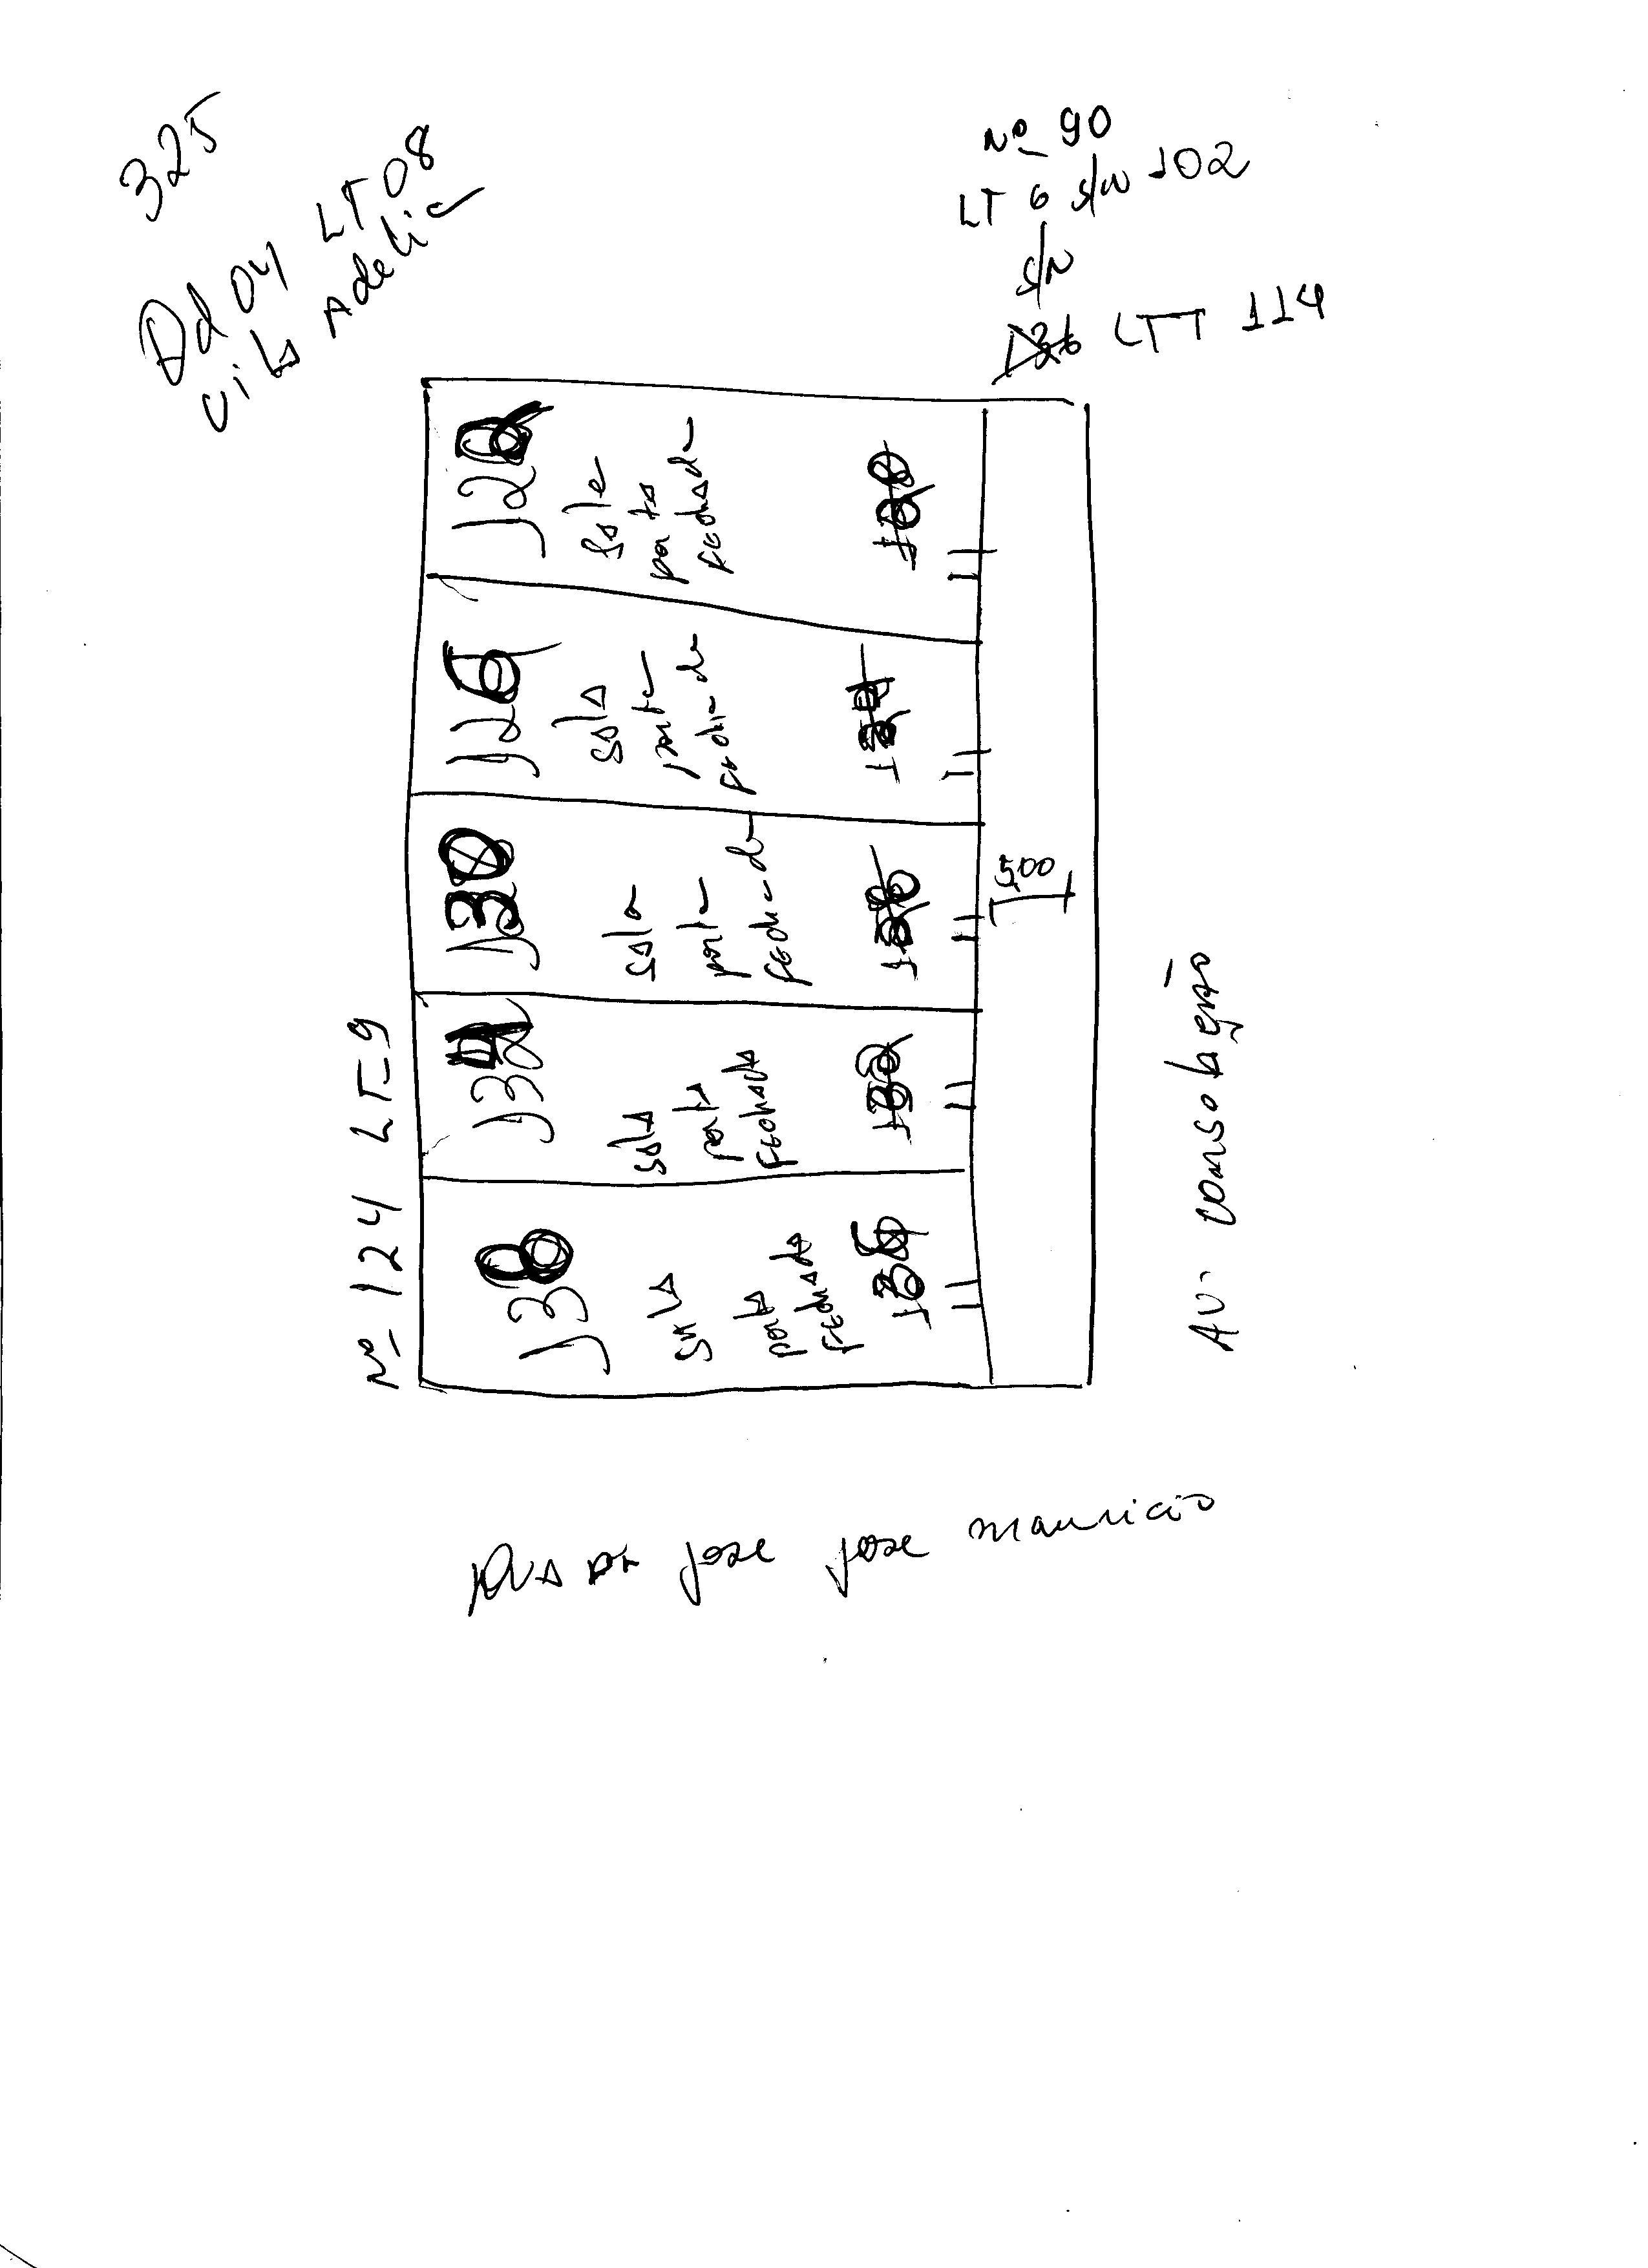 325
Qd 04 LT 08
vila Adelia
Nº 90
LT 6 S/N 102
S/N
LT7 114
Nº 124 LT=9
sala
porta
fechada
126
sala
porta
fechada
130
sala
porta
fechada
5,00
134
sala
porta
fechada
138
sala
porta
fechada
Av. consolação
RUA DR jose jose mauricio